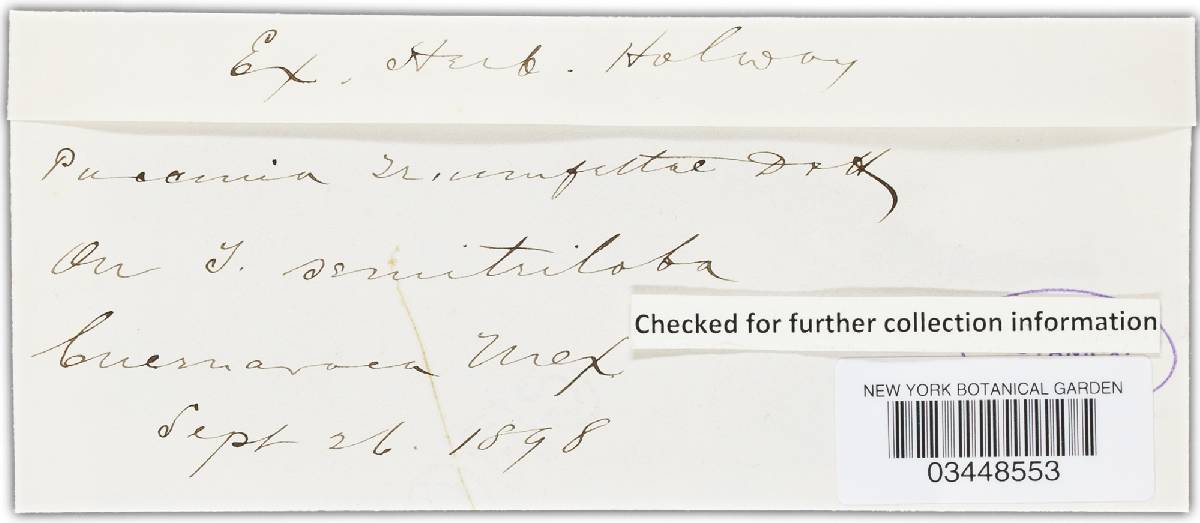 Ex. Herb. Holway
Puccinia Triumfettae D+H
On T. semitriloba
Cuernavaca Mex
Sept 26. 1898
Checked for further collection information
NEW YORK BOTANICAL GARDEN
03448553